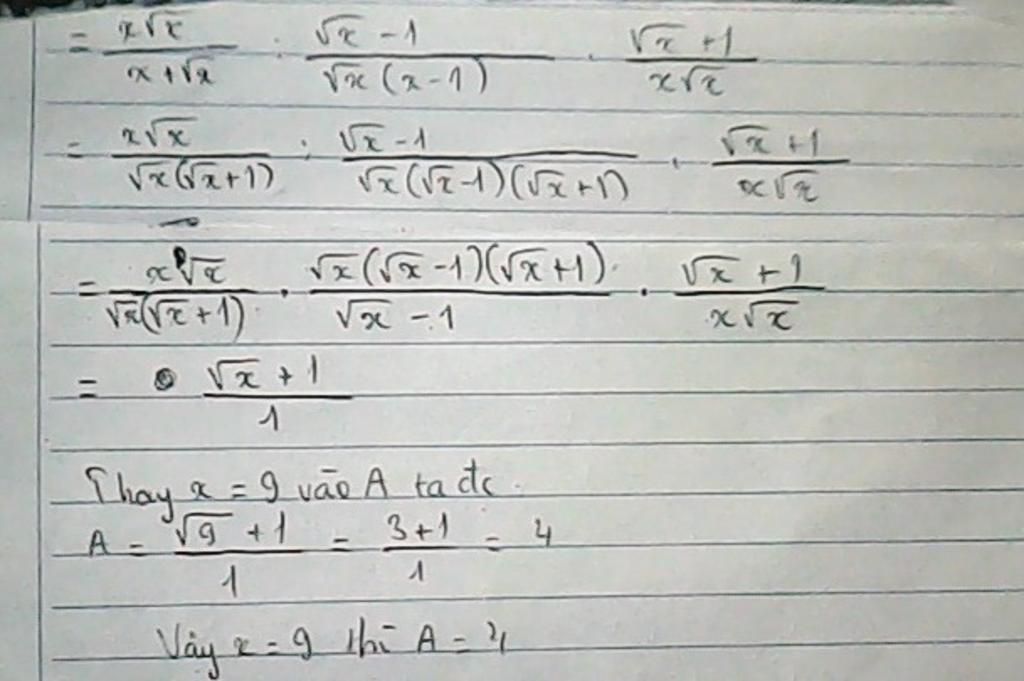 = x√x / x + √x : √x - 1 / √x (x - 1) . √x + 1 / x√x
= x√x / √x(√x + 1) : √x - 1 / √x(√x - 1)(√x + 1) . √x + 1 / x√x
= x√x / √x(√x + 1) . √x(√x - 1)(√x + 1) / √x - 1 . √x + 1 / x√x
= √x + 1 / 1
Thay x = 9 vào A ta đc
A = √9 + 1 / 1 = 3 + 1 / 1 = 4
Vậy x = 9 thì A = 4